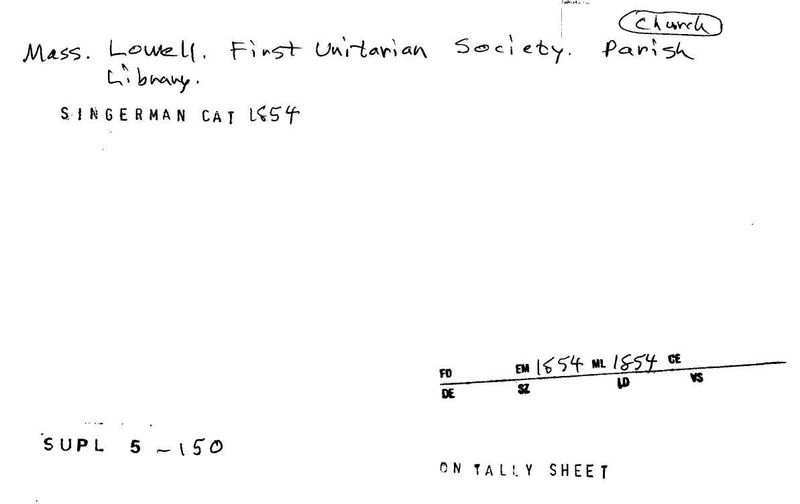 Church
Mass. Lowell. First Unitarian Society. Parish
Library.
SINGERMAN CAT 1854
FD EM 1854 ML 1854 CE
DE SZ LD VS
SUPL 5-150
ON TALLY SHEET